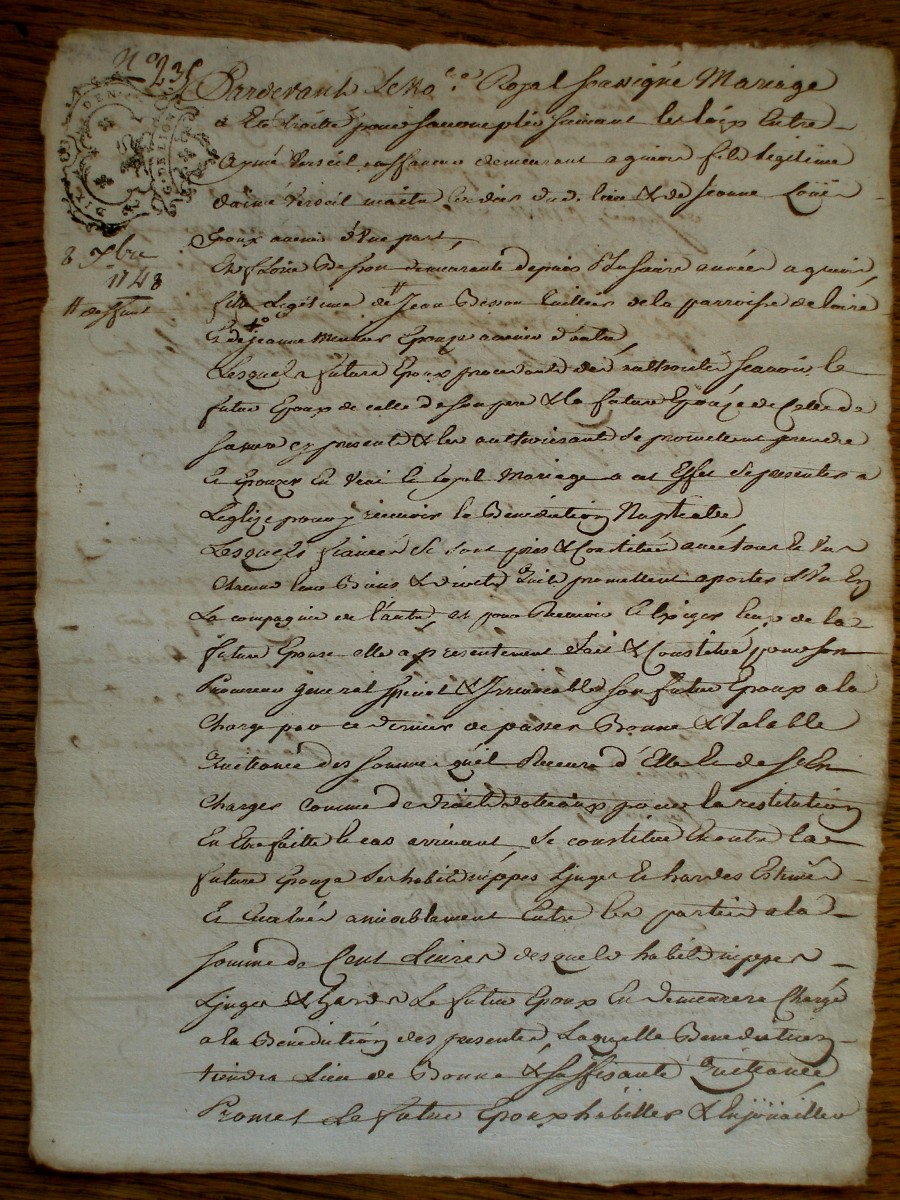 N° 235
DEUX
G. DE LION
8 Xbre
1748
†† deffunt
Pardevant le No.re Royal soussigné Mariage
a Eté traité pour sacomplir suivant les loix Entre
Aymé Verseil demeurant a givors fils legitime
daimé Verseil maitre dud. lieu & de Jeanne
Epoux avenir d'Vne part,
Et Besson demeurante depuis année a givors
fille Legitime de †† Jean Besson de la parroisse de loire
Et de Jeanne Epouze avenir d'autre,
Lesquels future Epoux procedants de lauthorité sçavoir le
futur Epoux de celle de son pere & la future Epouze de Celle de
sa mere cy presents & les authorisants se promettent prendre
Et Epouzer En vrai Et loyal Mariage a cet Effet se presenter a
Leglize pour y recevoir la Bénédiction Nuptialle
Lesquels fiancés se sont pris & Constitués avec tous Et Vn
Chacun leurs Biens & droits quils promettent aporter L'Vn En
La compagnie de l'autre, et pour Recevoir Et Exiger ceux de la
future Epouse elle a presentement fait & Constitué pour son
Procureur general special & Irrevocable son futur Epoux a la
Charge par ce dernier de passer Bonne & Valable
Quittance des sommes quil Recevra d'Elle Et de s'En
Charger comme de droits dotaux pour la restitution
En Etre faitte le cas arrivant, se constitue En outre la
future Epouze ses habits nippes Linges Et hardes Estimés
Et Evalués amiablement Entre les parties a la
somme de Cent Livres desquels habits nippes
Linges & hardes Le futur Epoux En demeurera Chargé
a la Benediction des presentes, Laquelle Benediction
tiendra Lieu de Bonne & suffisante Quittance
Promet Le futur Epoux habiller & Enjoüailler